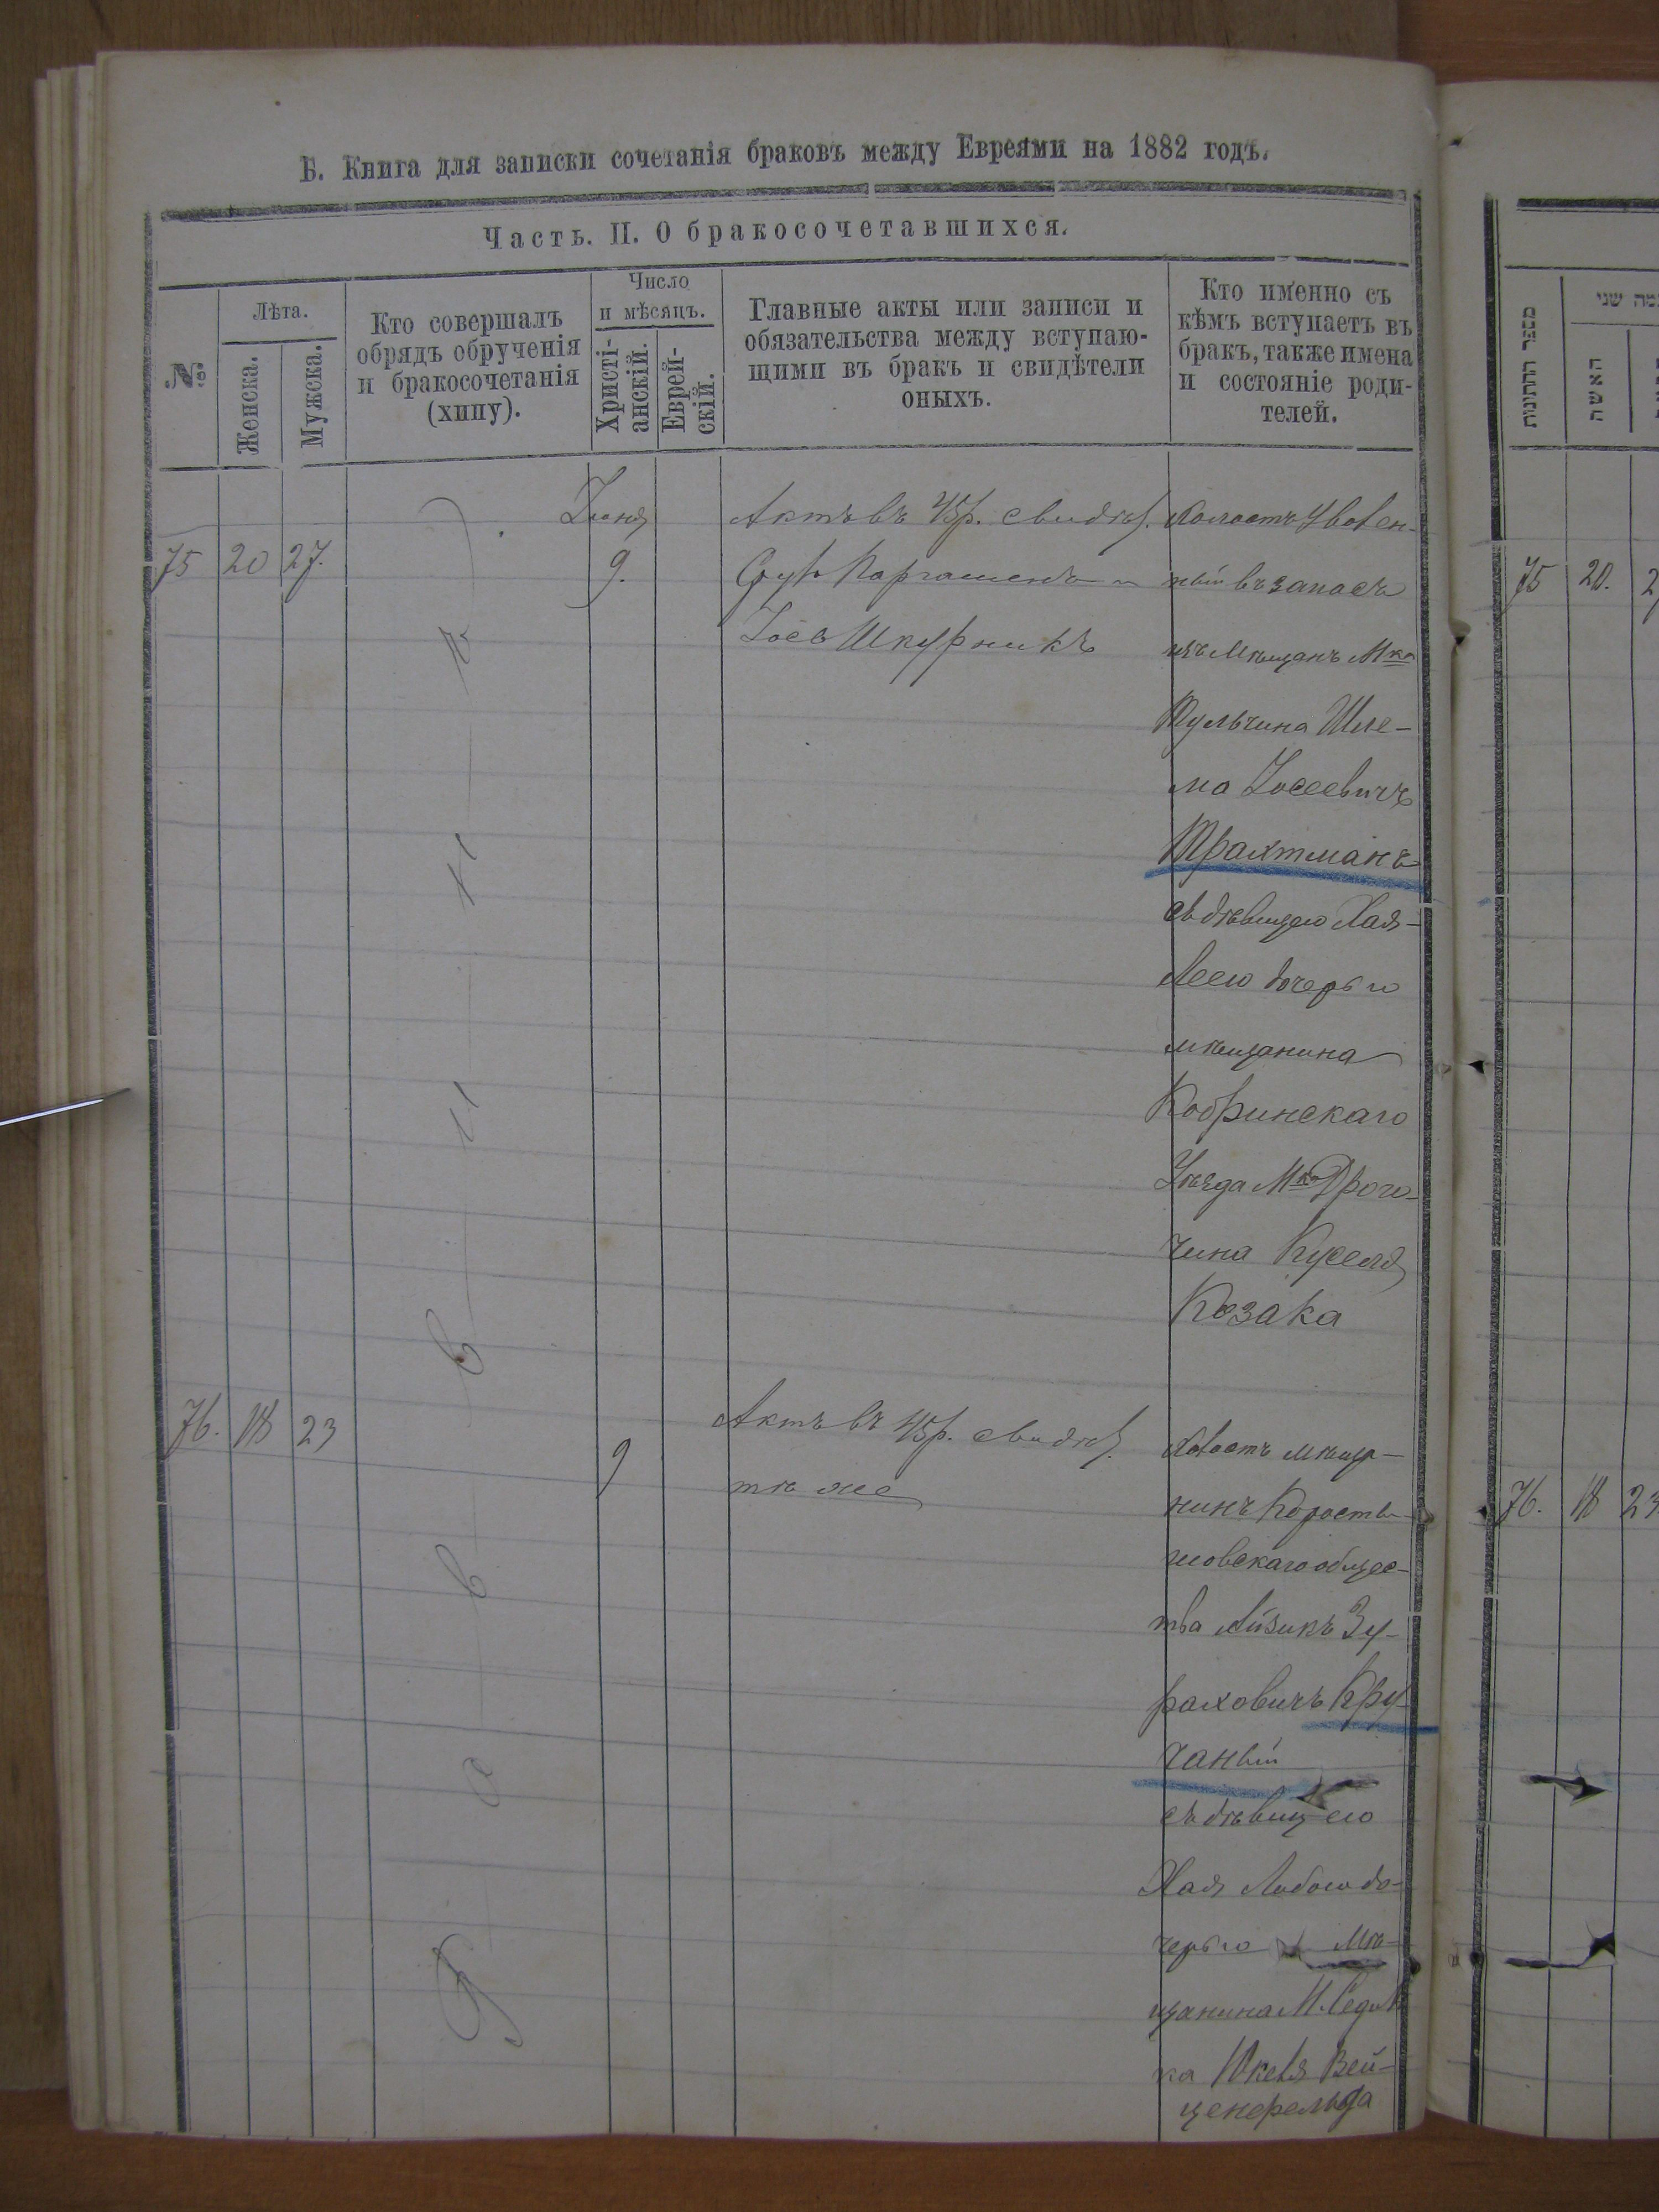 Б. Книга для записки сочетанія браковъ между Евреями на 1882 годъ.
Часть. II. О бракосочетавшихся.
№
Лѣта.
Женска.
Мужска.
Кто совершалъ
обрядъ обрученія
и бракосочетанія
(хипу).
Число
и мѣсяцъ.
Христі-
анскій.
Еврей-
скій.
Главные акты или записи и
обязательства между вступаю-
щими въ бракъ и свидѣтели
оныхъ.
Кто именно съ
кѣмъ вступаетъ въ
бракъ, также имена
и состояніе роди-
телей.
Р а в в и н
75 20 27.
Іюня
9.
Актъ въ 45р. свидѣт.
Іосъ Шкурникъ
Холостъ уволен-
ный въ запасъ
изъ мѣщанъ Мка
Тульчина Шле-
ма Іосевичъ
Трахтманъ
съ дѣвицею Хая-
Леею дочерью
мѣщанина
Кобринскаго
Уѣзда Мка Дроги-
чина Куселя
Козака
76. 18 23
9
Актъ въ 45р. свидѣт.
тѣ же
Холостъ мѣща-
нинъ Коросты-
шовскаго общес-
тва Айзикъ Зу-
раховичъ Кру-
чаный
съ дѣвицею
Хая Любою до-
черью мѣ-
щанина
ка Юкеля Вей-
ценфельда
מספר החתונות
האשה
75 20.
76. 18 23